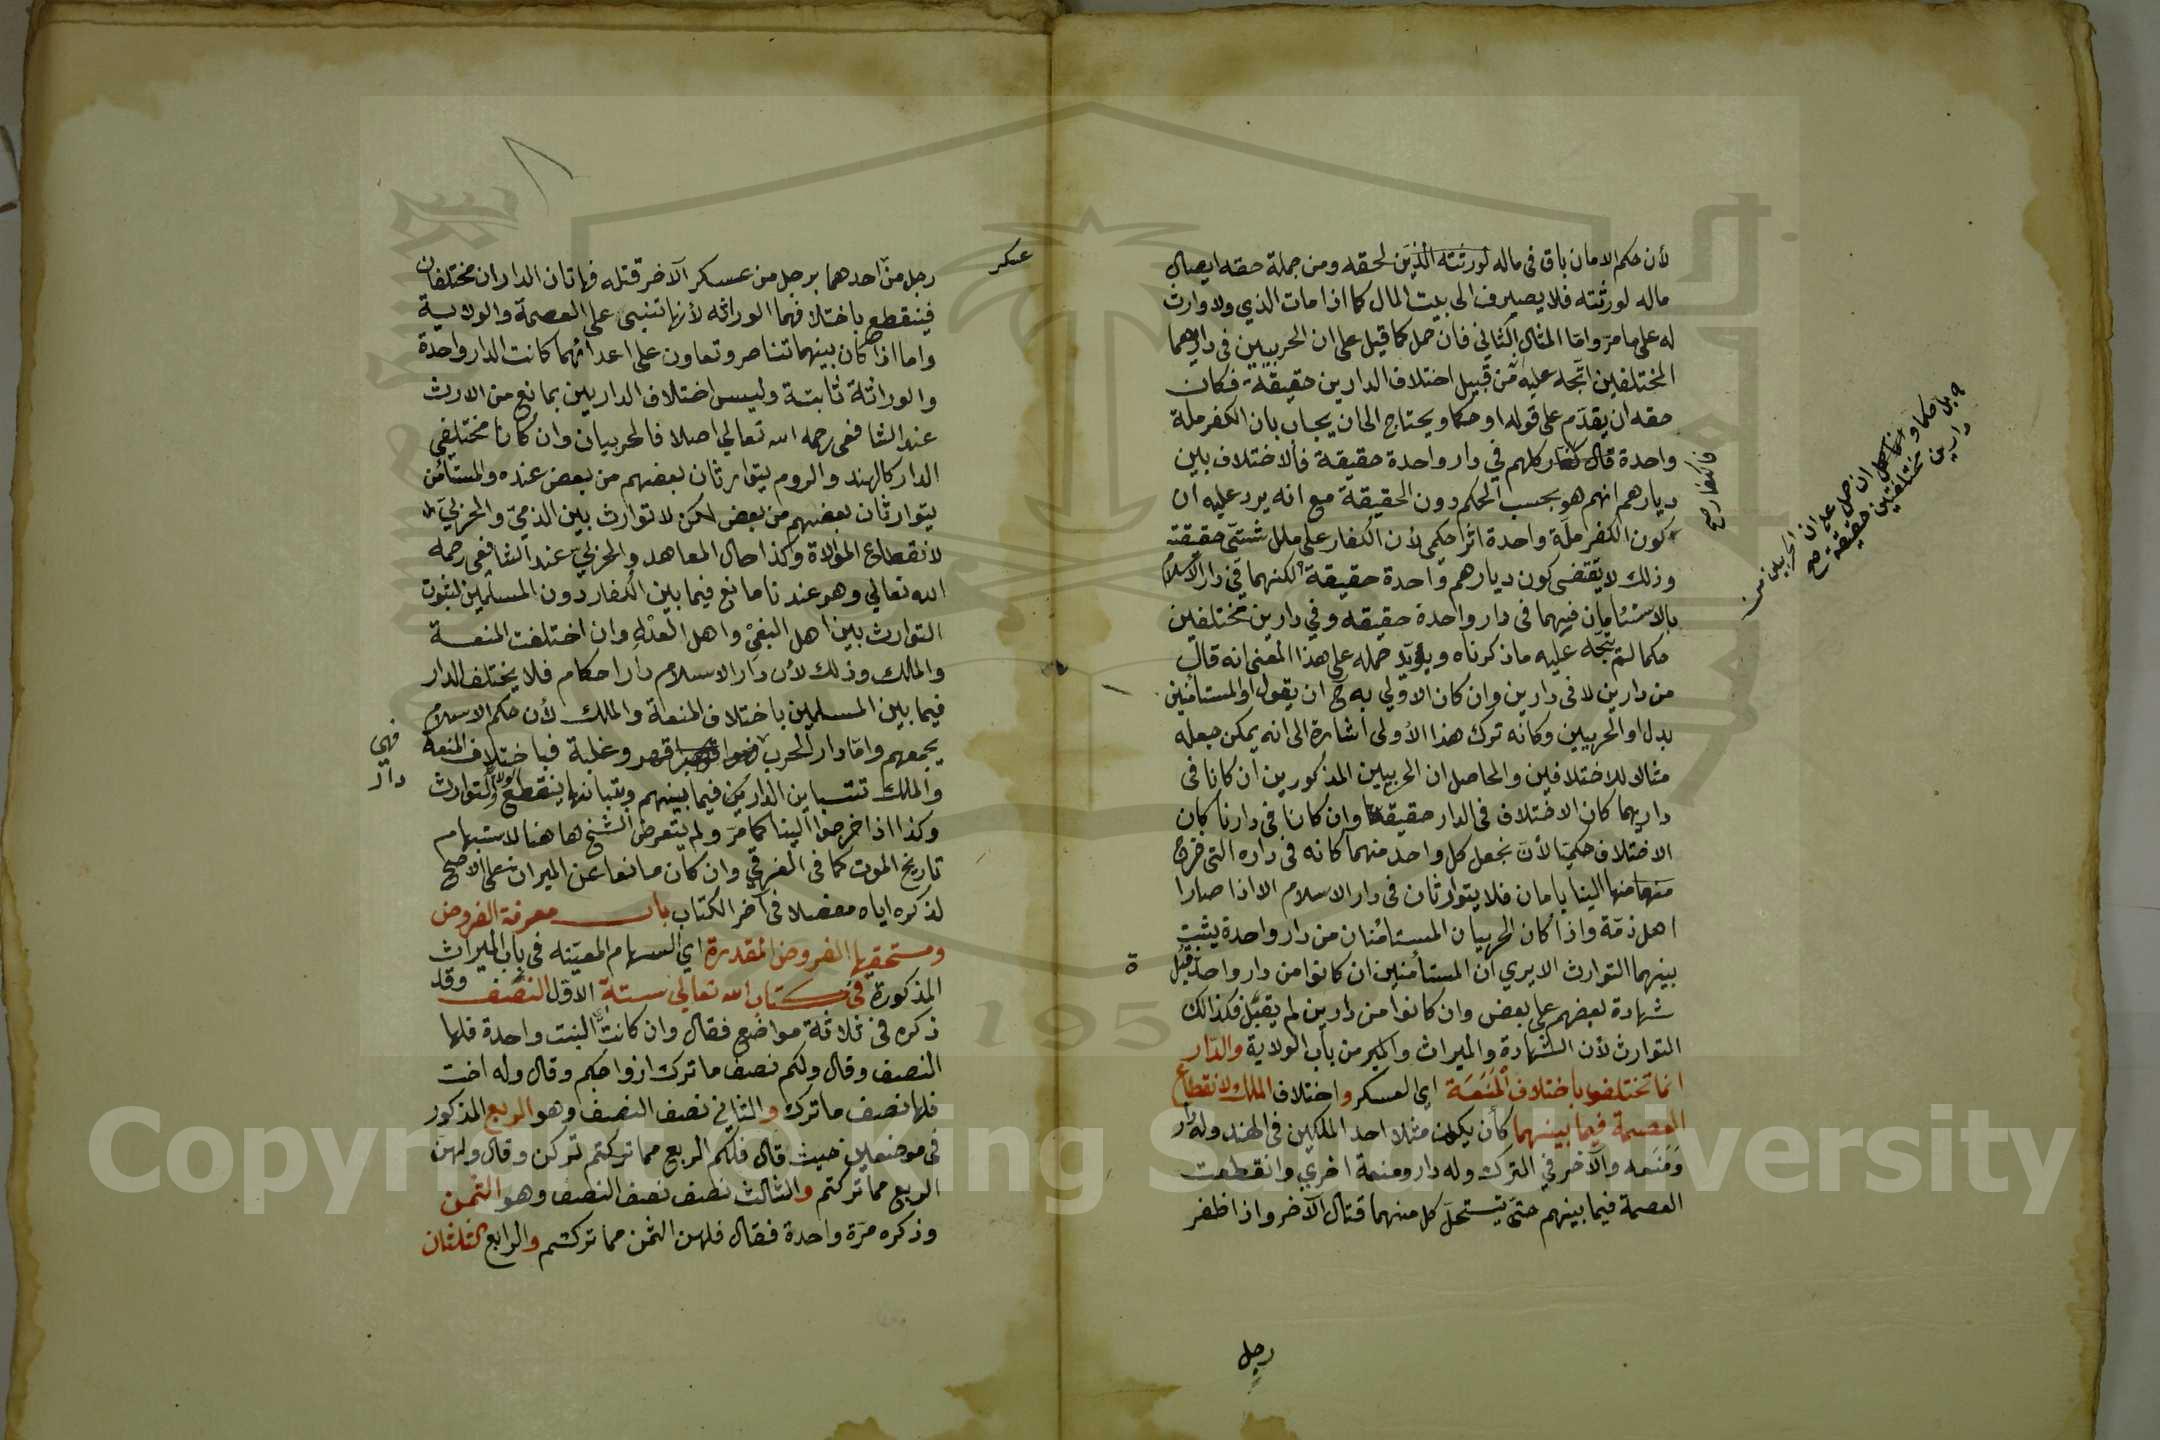 لأن حكم الامان باق في ماله لورثته الذين لحقه ومن جملة حقه ايصال
ماله لورثته فلا يصرف الى بيت المال كما اذا مات الذي ولا وارث
له على ما مرّ وامّا المثال الثاني فان حمل كما قيل على ان الحربيين في داريهما
المختلفين اتّجه عليه من قبيل اختلاف الدارين حقيقة فكان
حقه ان يقدّم على قوله او حكما ويحتاج الى ان يجاب بان الكفر ملة
واحدة قال كفار كلهم في دار واحدة حقيقة فالاختلاف بين
ديارهم انهم هو بحسب الحكم دون الحقيقة مع انه يرد عليه ان
كون الكفر ملّة واحدة اثر حكمى لأن الكفار على ملل شتىّ حقيقة
وذلك لا يقتضى كون ديارهم واحدة حقيقة لكنهما في دار الاسلام
بالاستئامان فيهما فى دار واحدة حقيقه وفي دارين مختلفين
حكما لم يتّجه عليه ما ذكرناه ويؤيّد حمله على هذا المعنى انه قال
من دارين لا فى دارين وان كان الاولي به ح ان يقول او المستأمنين
بدل او الحربيين وكانه ترك هذا الأولى اشارة الى انه يمكن جعله
مثالا للاختلافين والحاصل ان الحربيين المذكورين ان كانا فى
داريهما كان الاختلاف فى الدار حقيقة وان كانا فى دارنا كان
الاختلاف حكميّا لأن نجعل كل واحد منهما كانه فى داره التى خرج
منها الينا بامان فلا يتوارثان فى دار الاسلام الا اذا صارا
اهل ذمّة واذا كان الحربيان المستامنان من دار واحدة يثبت
بينهما التوارث الا يرى ان المستأمنين ان كانوا من دار واحدة قبل
شهادة بعضهم على بعض وان كانوا من دارين لم يقبل فكذالك
التوارث لأن الشهادة والميراث من باب الولاية والدّار
انما تختلف باختلاف المَنَعَة اي العسكر واختلاف الملك لانقطاع
العصمة فيما بينهما كأن يكون مثلا احد الملكين فى الهند وله دار
ومَنَعه والآخر في الترك وله دار ومنعة اخري وانقطعت
العصمة فيما بينهم حتى يستحلّ كل منهما قتال الآخر واذا ظفر
فالكفار صح
رجل
عسكر
رجل من احدهما برجل من عسكر الآخر قتله فهاتان الداران مختلفان
فينقطع باختلافهما الوراثه لأنها تنبنى على العصمة والولاية
واما اذا كان بينهما تناصر وتعاون على اعدائهما كانت الدار واحدة
والوراثة ثابتة وليس اختلاف الدارين بمانع من الارث
عند الشافعى رحمه الله تعالي اصلا فالحربيان وان كانا مختلفي
الدار كالهند والروم يتوارثان بعضهم من بعض عنده والمستأمن
يتوارثان بعضهم من بعض لكن لا توارث بين الذميّ والحربيّ
لانقطاع الموالاة وكذا حال المعاهد والحربيّ عند الشافعى رحمه
الله تعالي وهو عندنا مانع فيما بين الكفار دون المسلمين لثبوت
التوارث بين اهل البغى واهل العدل وان اختلفت المنعة
والملك وذلك لأن دار الاسلام دار احكام فلا يختلف الدار
فيما بين المسلمين باختلاف المنعة والملك لأن حكم الاسلام
يجمعهم وامّا دار الحرب قهر وغلبة فباختلاف المنعة
والملك تتباين الدارين فيما بينهم وبتباينها ينقطع التوارث
وكذا اذا خرجوا الينا كما مرّ ولم يتعرض الشيخ هاهنا لاستبهام
تاريخ الموت كما فى الغرقى وان كان مانعا عن الميراث على الاصحّ
لذكره اياه مفصلا فى آخر الكتاب باب معرفة الفروض
ومستحقيها الفروض المقدرة اي السهام المعيّنه فى باب الميراث
المذكورة فى كتاب الله تعالي ستة الاوّل النصف وقد
ذكره فى ثلاثة مواضع فقال وان كانت البنت واحدة فلها
النصف وقال ولكم نصف ما ترك ازواجكم وقال وله اخت
فلها نصف ما ترك والثاني نصف النصف وهو الربع المذكور
فى موضعين حيث قال فلكم الربع مما تركتم تركن وقال ولهنّ
الربع مما تركتم والثالث نصف نصف النصف وهو الثمن
وذكره مرّة واحدة فقال فلهن الثمن مما تركتم والرابع الثلثان
فهى
دار
Copyright © King Saud University
195